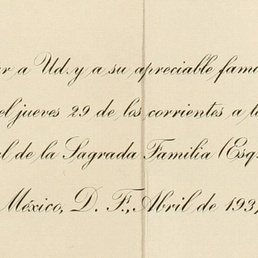 r a Ud. y a su apreciable fam
el jueves 29 de los corrientes a l
l de la Sagrada Familia (Esq
México, D. F., Abril de 193